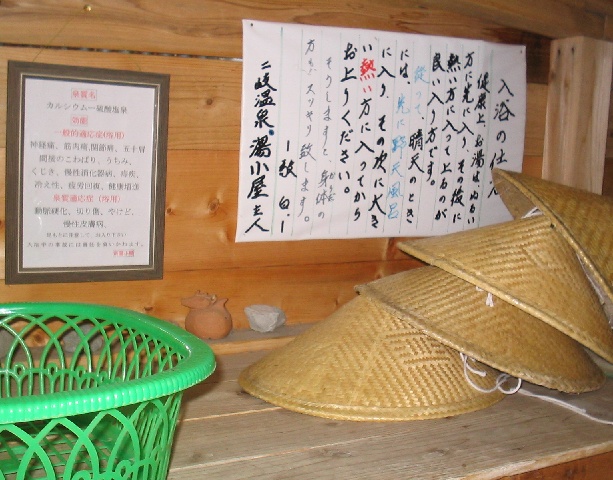 泉質名
カルシウム一硫酸塩泉
効能
一般的適応症(浴用)
神経痛、筋肉痛、関節痛、五十肩
関節のこわばり、うちみ、
くじき、慢性消化器病、痔疾、
冷え性、疲労回復、健康増進
泉質適応症(浴用)
動脈硬化、切り傷、やけど、
慢性皮膚病、
入浴の仕方
健康上、お湯はぬるい
方に先に入り、その後に
熱い方に入って上るのが
良い入り方です。
従って、晴天のとき
には、先に野天風呂
に入り、その次に大き
い熱い方に入ってから
お上りください。
そうしますと身体の
方もスッキリ致します。
ー敬白ー
二岐温泉・湯小屋主人